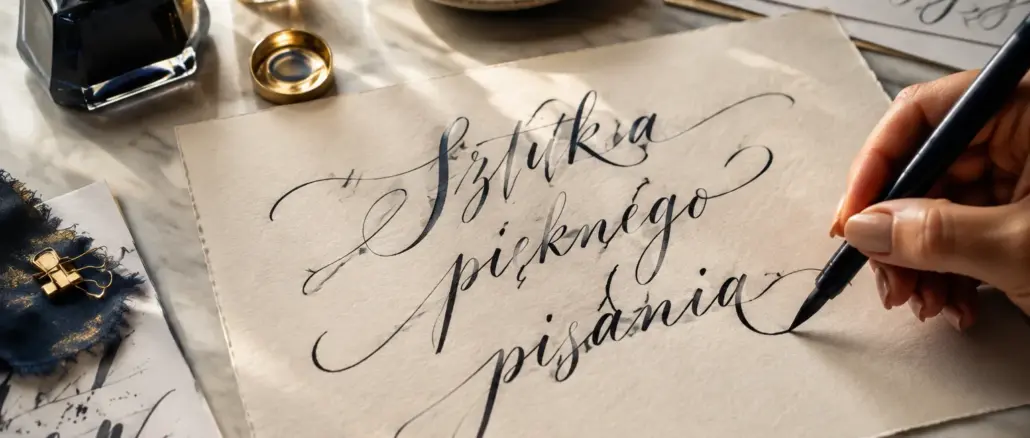 Sztuka
pięknego
pisania